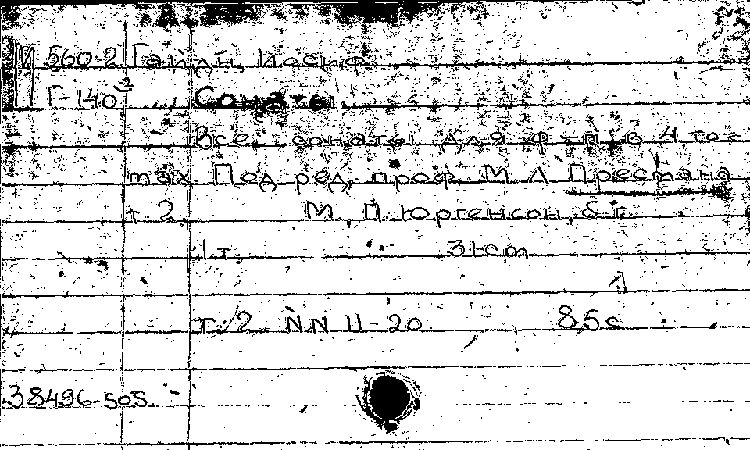 560-2 Гайдн, Иосиф
Г-140
Сонаты
Все сонаты для ф-п. в 4 то=
тах Под ред. проф. М Л Престана
т 2. М., П. Юргенсон, б.г.
т. 31 cm
т. 2 NN 11-20 85 с
38496-505